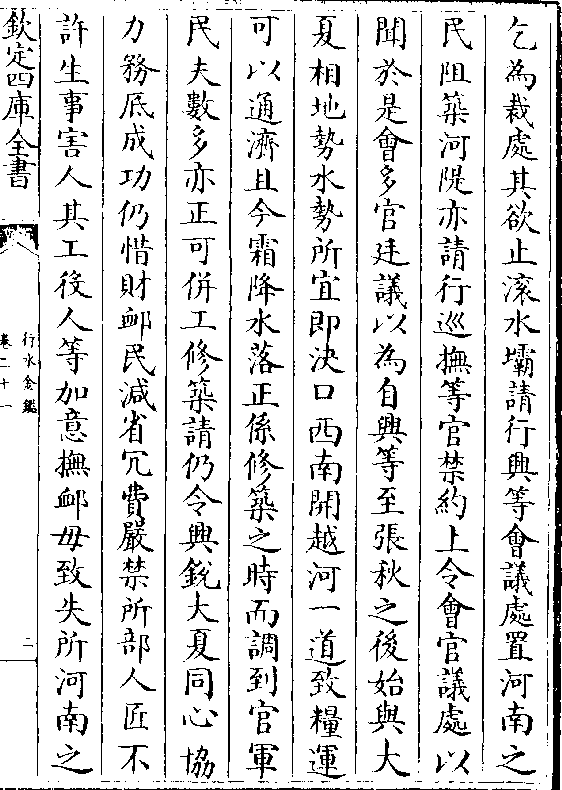 乞為裁處其欲止滚水壩請行興等會議處置河南之
民阻築河隄亦請行巡撫等官禁約上令會官議處以
聞於是會多官廷議以為自興等至張秋之後始與大
夏相地勢水勢所宜即決口西南開越河一道致糧運
可以通濟且今霜降水落正係修築之時而調到官軍
民夫數多亦正可併工修築請仍令興銳大夏同心協
力務厎成功仍惜財衈民減省冗費嚴禁所部人匠不
許生事害人其工役人等加意撫衈毋致失所河南之
欽定四庫全書
行水金鑑
卷二十一
二